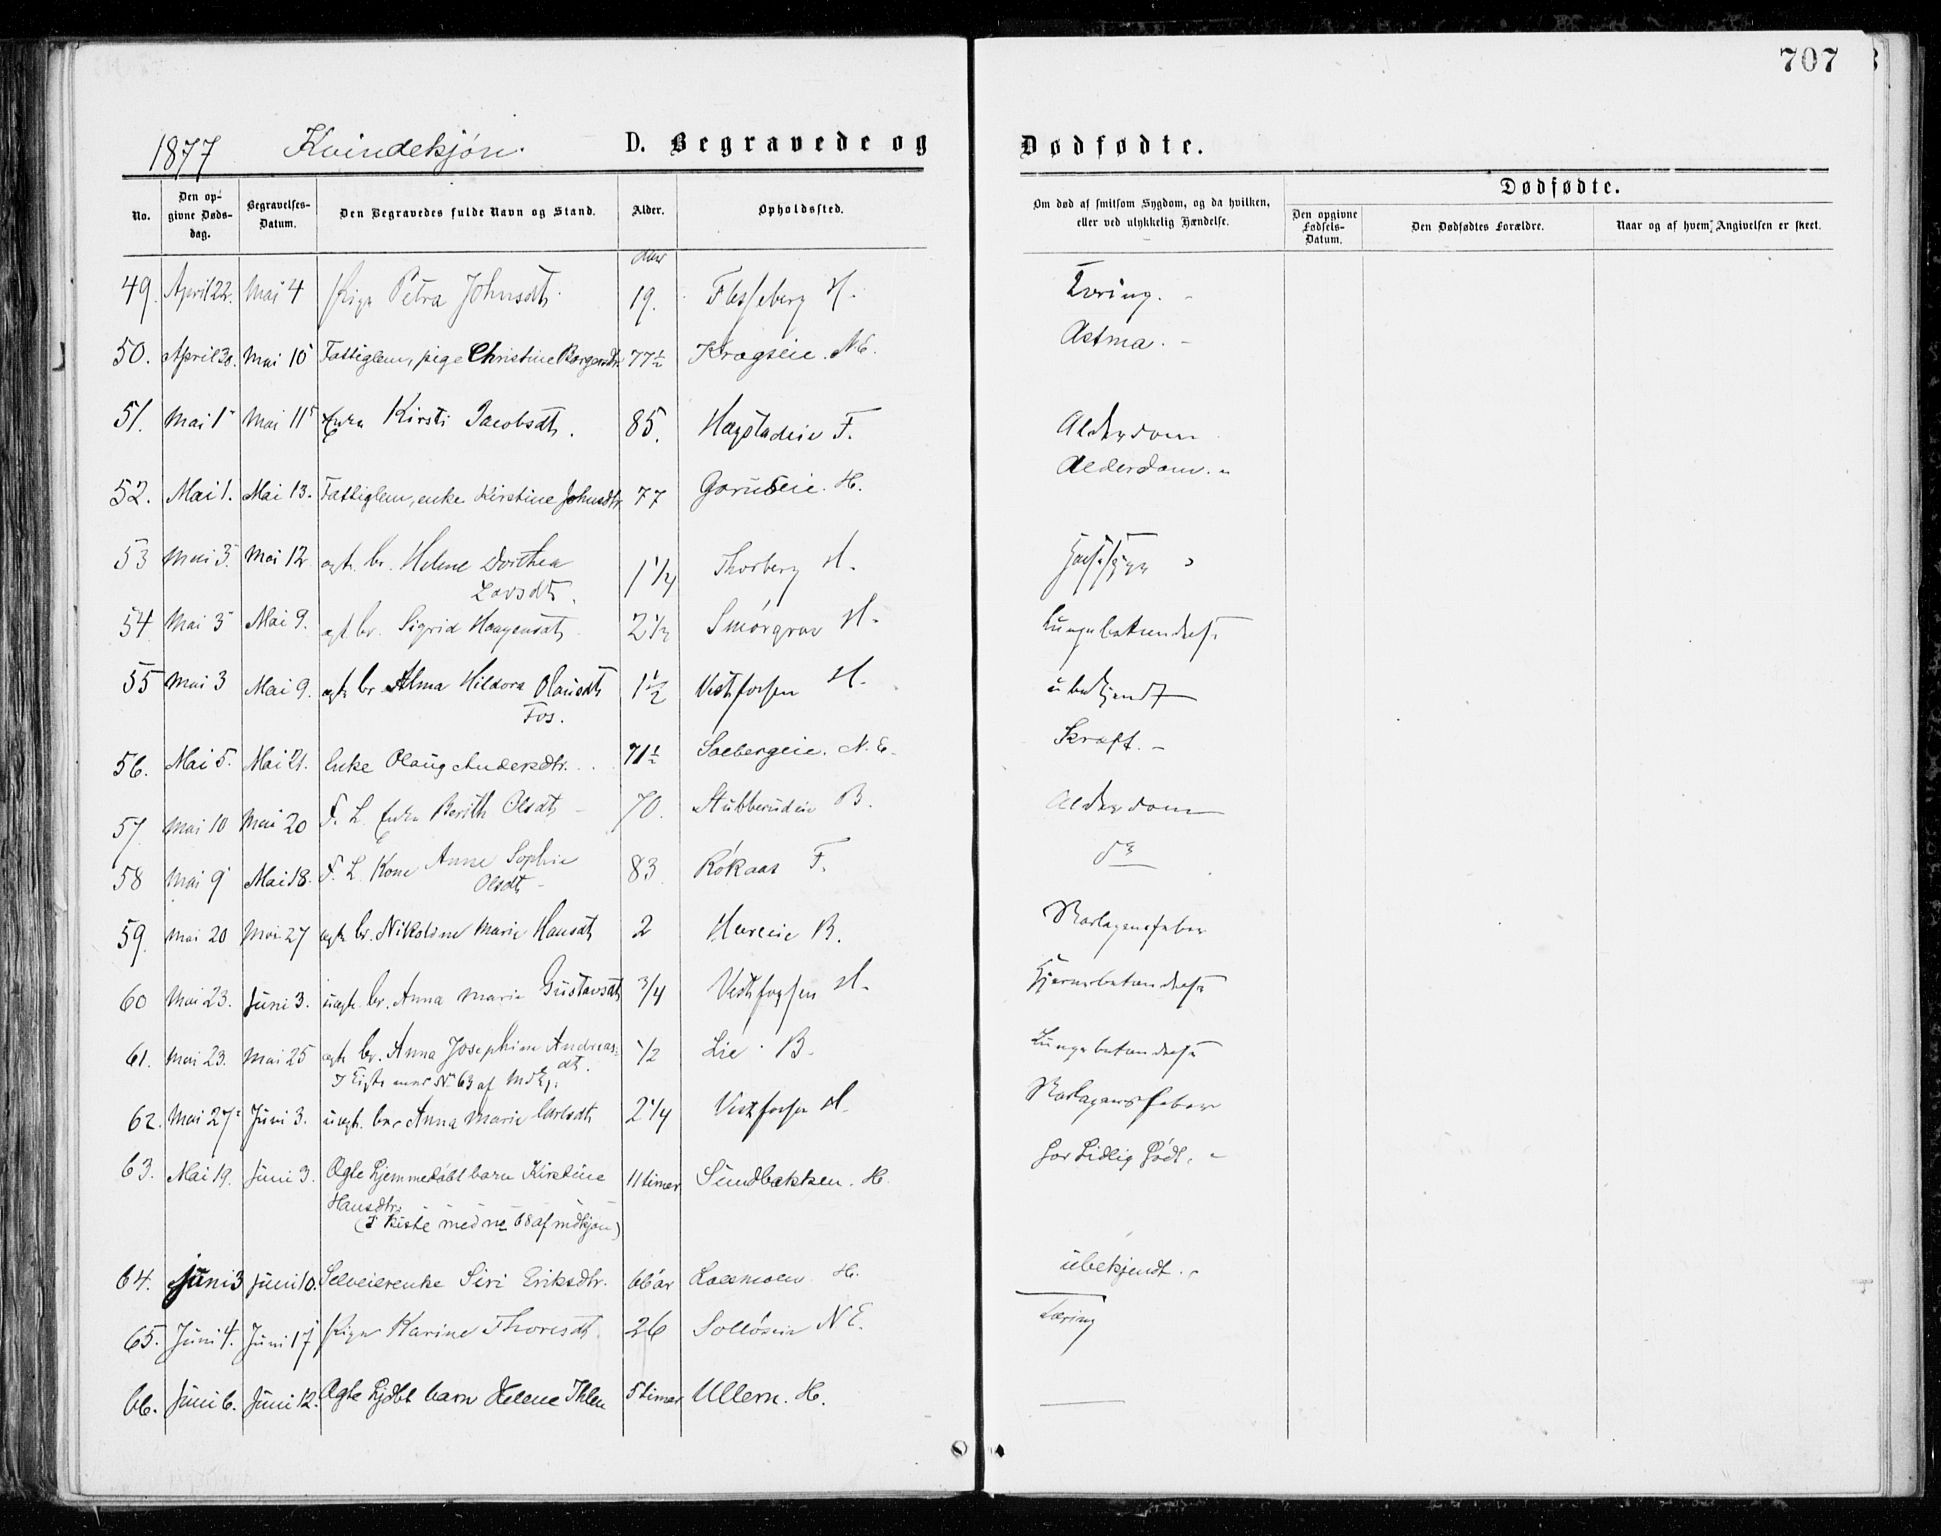 707
1877 Kvindekjøn. D. Begravede og Dødfødte.
Dødfødte.
No. Den opgivne Dødsdag. Begravelses-Datum. Den Begravedes fulde Navn og Stand. Alder. Opholdssted. Om død af smitsom Sygdom, og da hvilken, eller ved ulykkelig Hændelse. Den opgivne Fødsels-Datum. Den Dødfødtes Forældre. Naar og af hvem Angivelsen er skeet.
49. April 22. Mai 4 Pige Petra Johnsdt. 19. Flesseberg H. Tæring.
50. April 30. Mai 10 Fattiglem, pige Christine Borgersdtr. 77½ Kragseie. N.E. Astma.
51. Mai 1 Mai 11 Enke Kirsti Jacobsdt. 85. Hagstadeie F. Alderdom
52. Mai 1. Mai 13. Fattiglem, enke Kirstine Johnsdtr. 77 Garudeie. H. Alderdom.
53 Mai 3. Mai 12 ægte br. Helene Dorthea
Larsdt. 1¼ Thorberg H.
54 Mai 3 Mai 9. ægt br. Sigrid Haagensdt. 2½ Smørgrav H. Lungebetændelse
55 Mai 3 Mai 9. ægte br. Alma Hildora Olausdt
Fos. 1½ Vestfossen H. ubekjendt
56. Mai 5. Mai 21. Enke Olaug Andersdtr. 71½ Solbergeie. N.E. Kræft.
57. Mai 10 Mai 20 F. L. Enke Berith Olsdt 70. Stubberudeie B. Alderdom
58 Mai 9 Mai 18. F. L. Kone Anne Sophie
Olsdt 83 Røkaas F. do
59. Mai 20 Mai 27 ægte br. Nikoline Marie Hansdt 2 Hureie B. Skarlagensfeber
60 Mai 23. Juni 3. uægte br. Anna Marie Gustavsdt 3/4 Vestfossen H. Hjernebetændelse
61. Mai 23. Mai 25 ægte br. Anna Josephine Andreas-
dt. ½ Lie B. Lungebetændelse
I Kiste med No 63 af Mdkj.
62. Mai 27 Juni 3. uægte br. Anna Marie Carlsdt 2¼ Vestfossen H. Skarlagensfeber
63. Mai 19. Juni 3. Ægte hjemmedøbt barn Kirstine
Hansdtr. 11 timer Sundbakken. H. For tidlig født.
(I kiste med no 68 af mdkjøn)
64. Juni 3 Juni 10. Selveierenke Siri Eriksdtr. 66 år Loesmoen H. ubekjendt.
65. Juni 4. Juni 17 Pige Karine Thoresdt. 26 Solløseie N E. Tæring
66. Juni 6. Juni 12. Ægte hjdbt barn Helene Ihlen 5 timer Ullern. H.